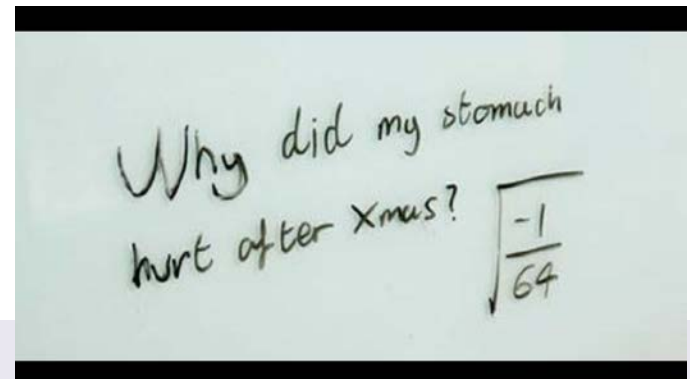 Why did my stomach
hurt after Xmas? √(-1/64)